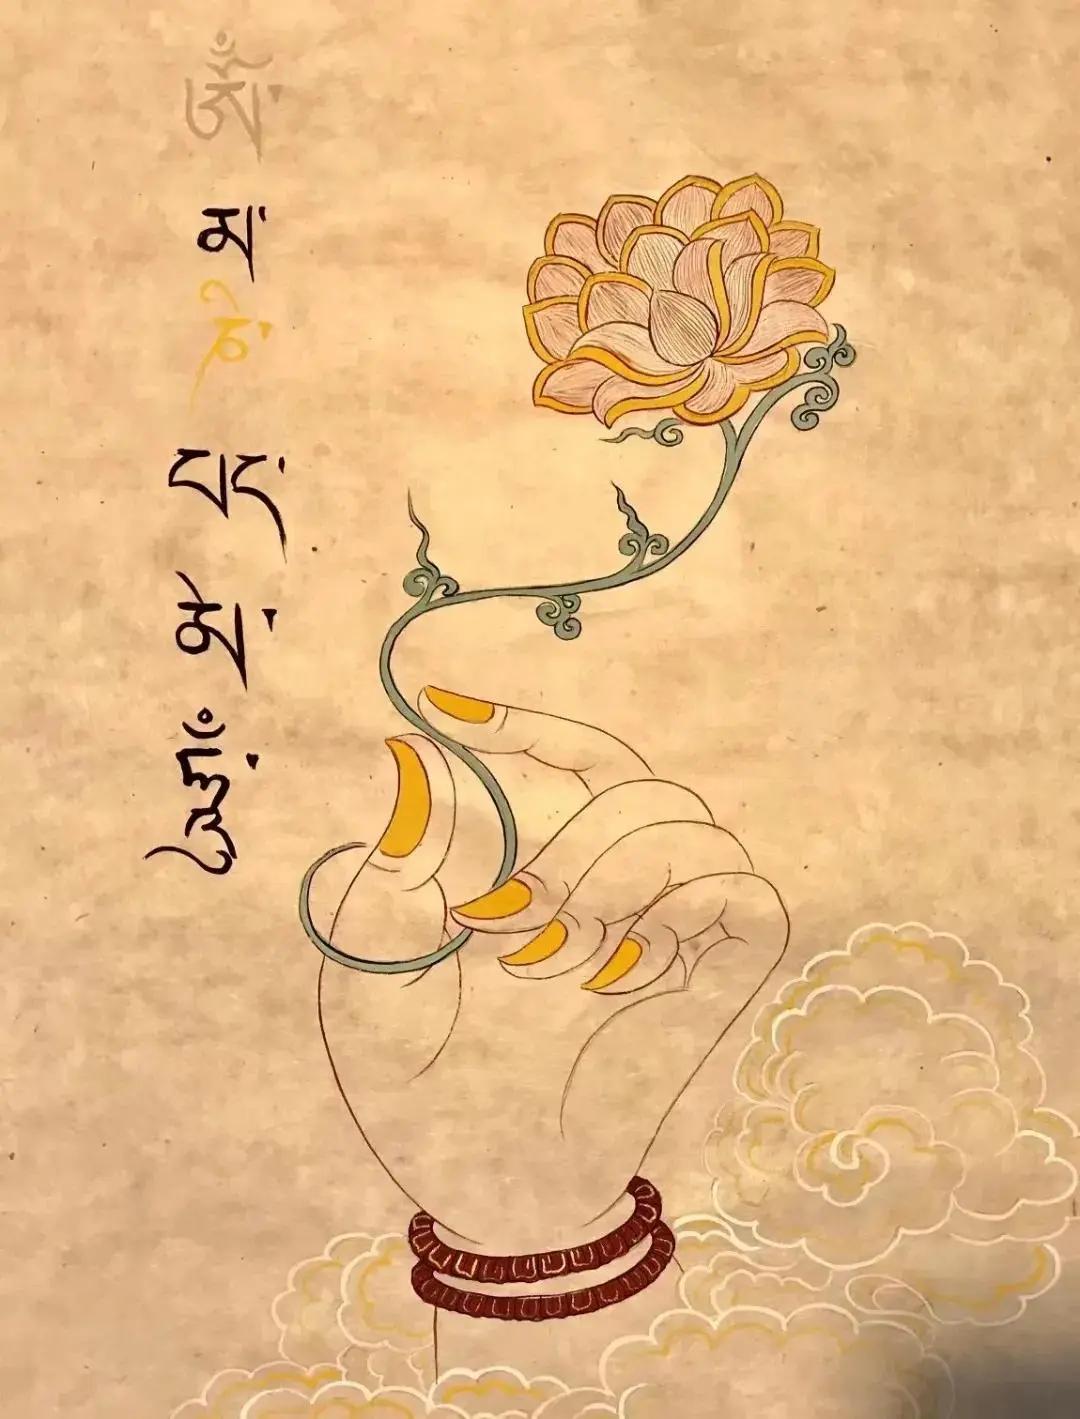 ཨོཾ་
མ་
ཎི་
པད་
མེ་
ཧཱུྃ་